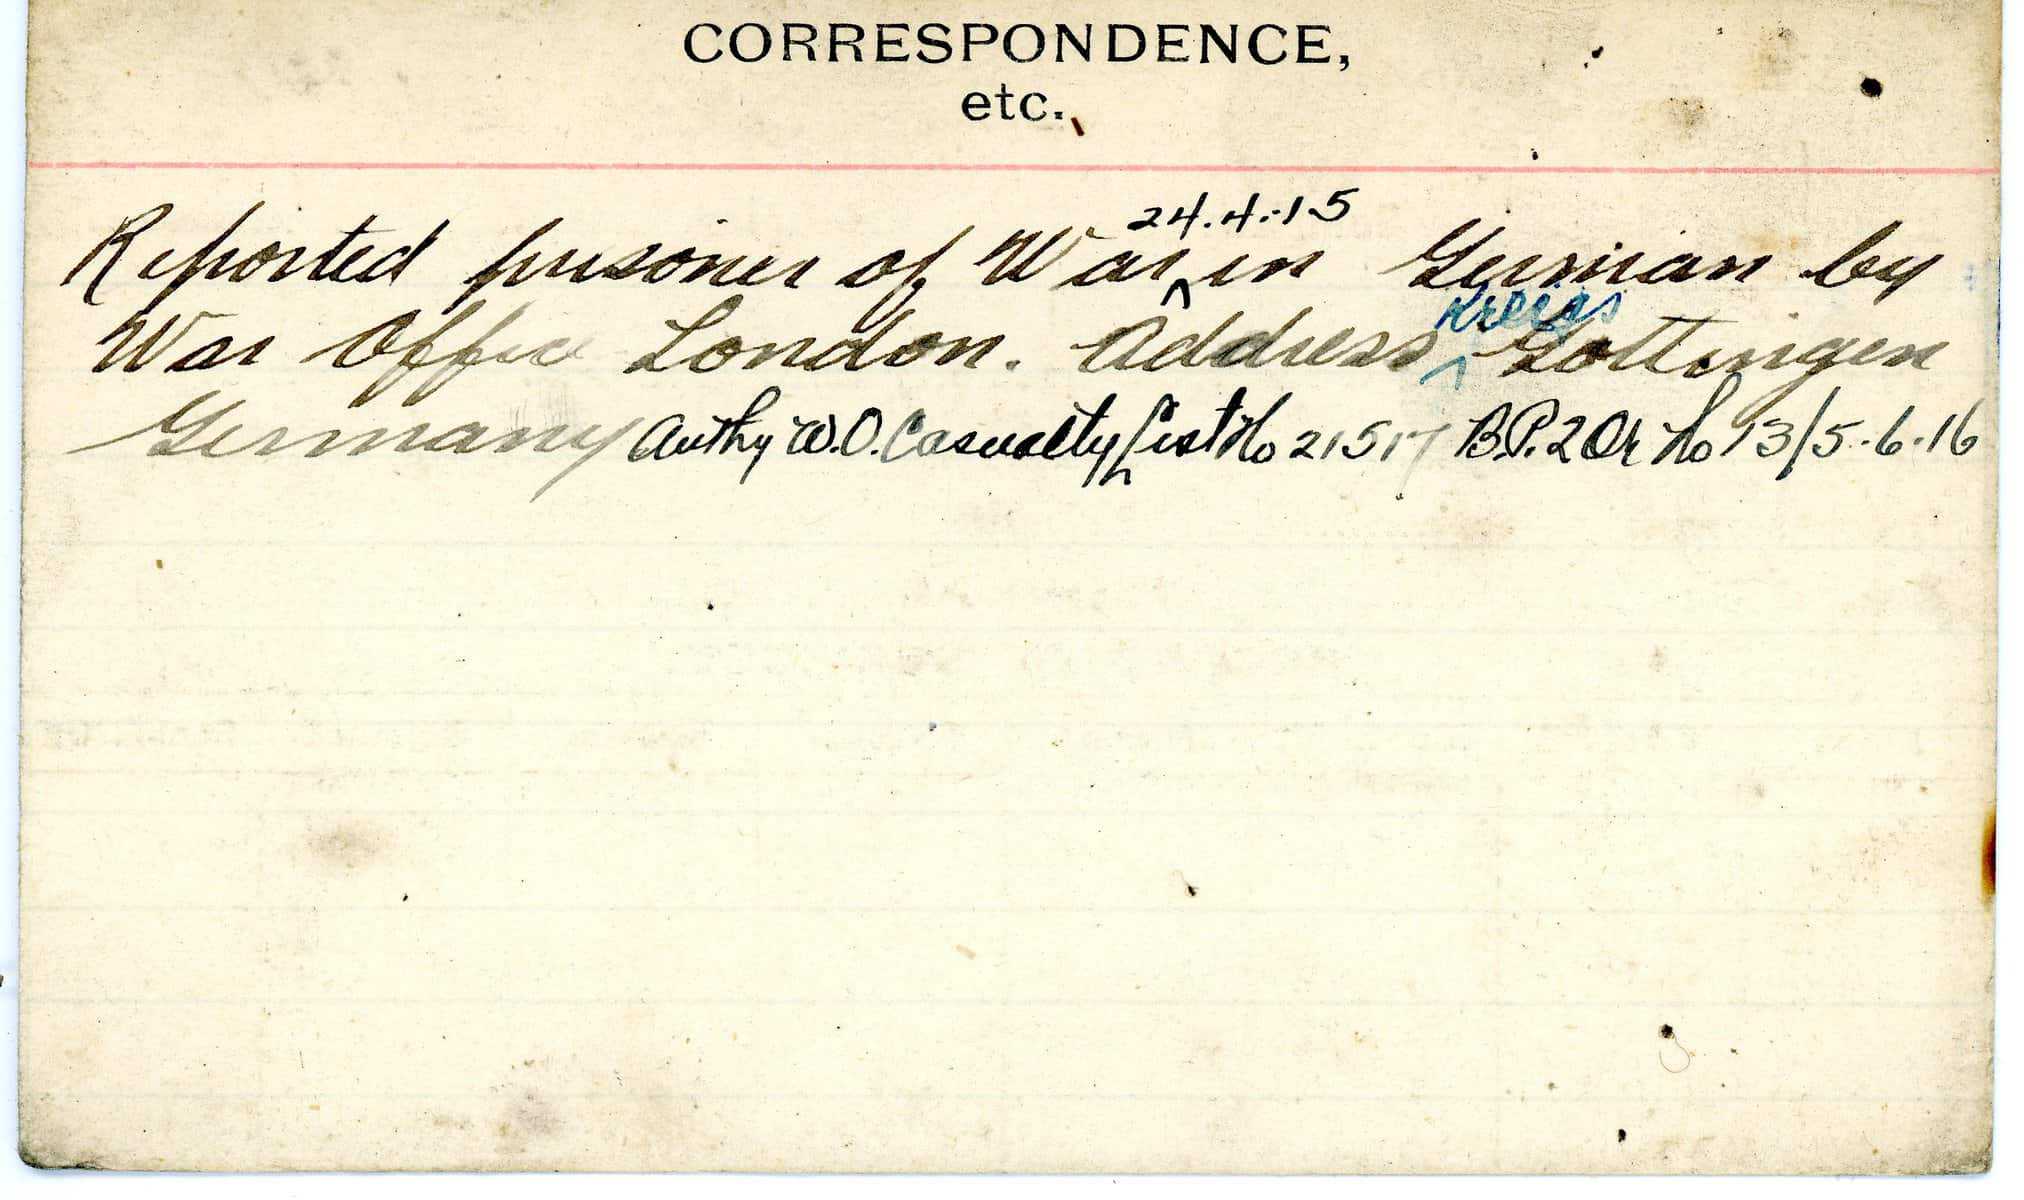 CORRESPONDENCE,
etc.
24.4.15
Reported prisoner of War ^ in German by
Kreigs
War Office London. Address ^ Gottingen
Germany Authy W.O. Casualty List No 21517 B.P.2 Or No 13/5.6.16